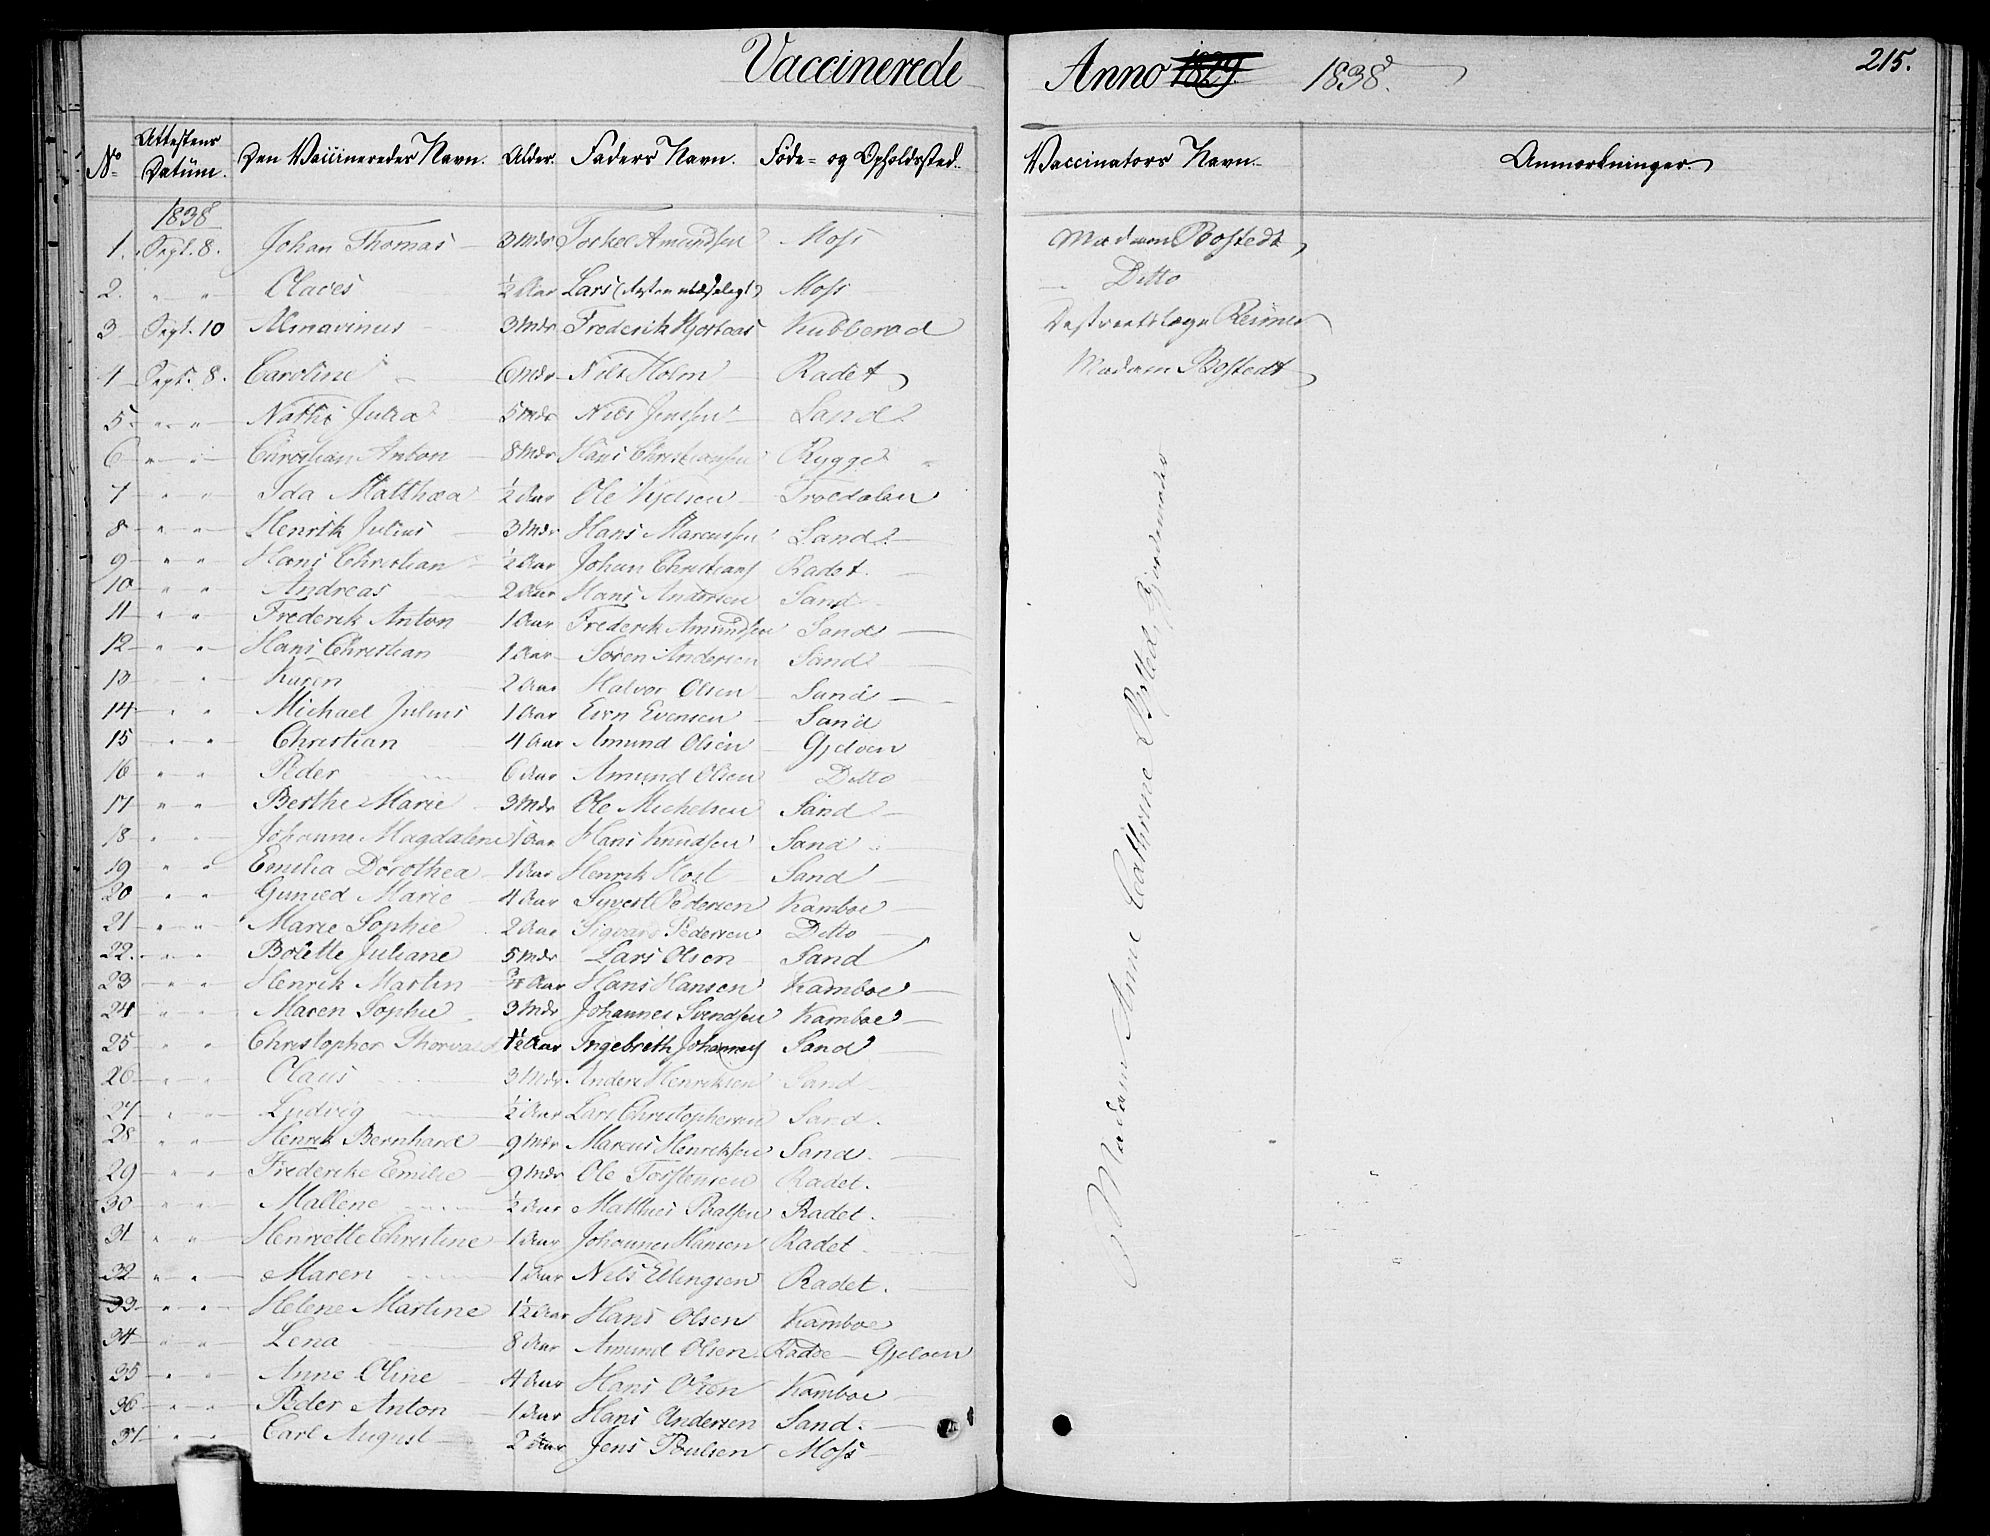 Vaccinerede Anno 1829. 1838. 215.
No Attestens Datum. Den Vaccineredes Navn. Alder. Faders Navn. Føde- og Opholdssted. Vaccinators Navn. Anmerkninger.
1838
1. Sept. 8. Johan Thomas 3 Mdr Torkel Amundsen Moss Madam Bostedt
2. " " Claves ½ Aar Lars (næsten ulæseligt) Moss Ditto
3 Sept. 10 Minavinus 3 Mdr Frederik Hjortaas Kubberød Destrectslæge Reimer
4 Sept. 8. Caroline 6 Mdr Nils Holm Radet Madam Bostedt
5 " " Nathe Julia 5 Mdr Nils Jenssen Sand
6 " " Christian Anton 8 Mdr Hans Christiansen Rygge
7 " " Ida Matthæa ½ Aar Ole Kjelsen Troedalen
8 " " Henrik Julius 3 Mdr Hans Marcussen Sand
9 " " Hans Christian ½ Aar Johan Christians Radet
10 " " Andreas 2 Aar Hans Andersen Sand
11 " " Frederik Anton 1 Aar Frederik Amundsen Sand
12 " " Hans Christian 1 Aar Søren Andersen Sand
13 " " Karen 2 Aar Halvor Olsen Sand
14 " " Michael Julius 1 Aar Even Evensen Sand
15 " " Christian 4 Aar Amund Olsen Gjeløen
16 " " Peder 6 Aar Amund Olsen Ditto
17 " " Berthe Marie 3 Mdr Ole Michelsen Sand
18 " " Johanne Magdalene 1 Aar Hans Knudsen Sand
19 " " Emilia Dorothea 1 Aar Henrik Høst Sand
20 " " Gunied Marie 4 Aar Syvert Pedersen Kamboe
21 " " Marie Sophie 2 Aar Sigvard Pedersen Ditto
22. " " Bolette Juliane 5 Mdr Lars Olsen Sand
23 " " Henrik Martin ¾ Aar Hans Hansen Kamboe
24 " " Maren Sophie 3 Mdr Johannes Svendsen Kamboe
25 " " Christopher Thorvald 1½ Aar Ingebreth Johannes Sand
26 " " Claus 3 Mdr Anders Henriksen Sand
27 " " Ludvig ½ Aar Lars Christophersen Sand.
28 " " Henrik Bernhard 9 Mdr Marcus Henriksen Sand.
29 " " Frederike Emilie 9 Mdr Ole Torstensen Radet.
30 " " Mallene ½ Aar Matthies Paalsen Radet.
31 " " Henriette Christine 1 Aar Johannes Hansen Radet
32 " " Maren 1 Aar Nils Ellingsen Radet.
33 " " Helene Martine 1½ Aar Hans Olsen Kamboe
34 " " Lena 8 Aar Amund Olsen Radde Gjeløen
35 " " Anne Oline 4 Aar Hans Olsen Kamboe
36 " " Peder Anton 1 Aar Hans Andersen Sand.
37 " " Carl August 2 Aar Jens Poulsen Moss
Madam Anne Cathrine Bosted, Gjordemoder